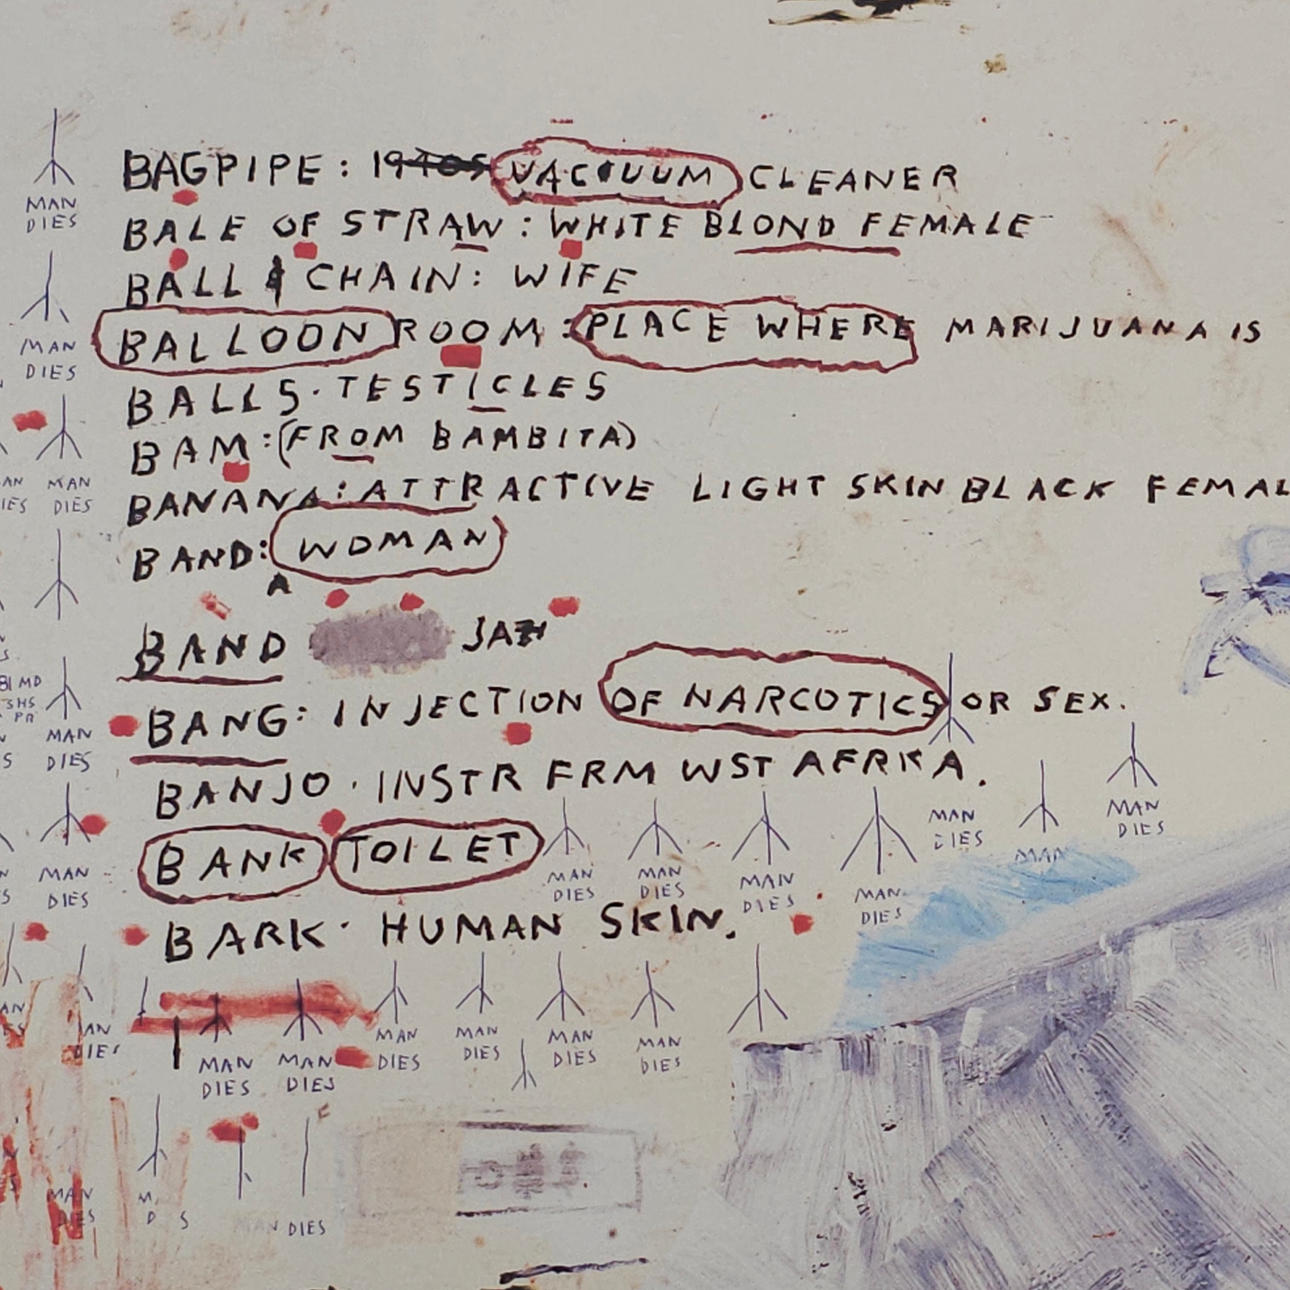 BAGPIPE: 1940S VACUUM CLEANER
BALE OF STRAW: WHITE BLOND FEMALE
BALL & CHAIN: WIFE
BALLOON ROOM: PLACE WHERE MARIJUANA IS
BALLS. TESTICLES
BAM: (FROM BAMBITA)
BANANA: ATTRACTIVE LIGHT SKIN BLACK FEMAL
BAND: WOMAN
A
BAND JAZ
BANG: INJECTION OF NARCOTICS OR SEX.
BANJO. INSTR FRM WST AFRKA.
BANK TOILET
BARK. HUMAN SKIN.
MAN
DIES
MAN
DIES
AN
IES
MAN
DIES
MAN
DIES
MAN
DIES
MAN
DIES
MAN
DIES
MAN
DIES
MAN
DIES
MAN
DIES
MAN
MAN
DIES
AN
DIES
MAN
DIES
MAN
DIES
MAN
DIES
MAN
DIES
MAN
DIES
MAN
DIES
MAN
DIES
M
D S
AN DIES